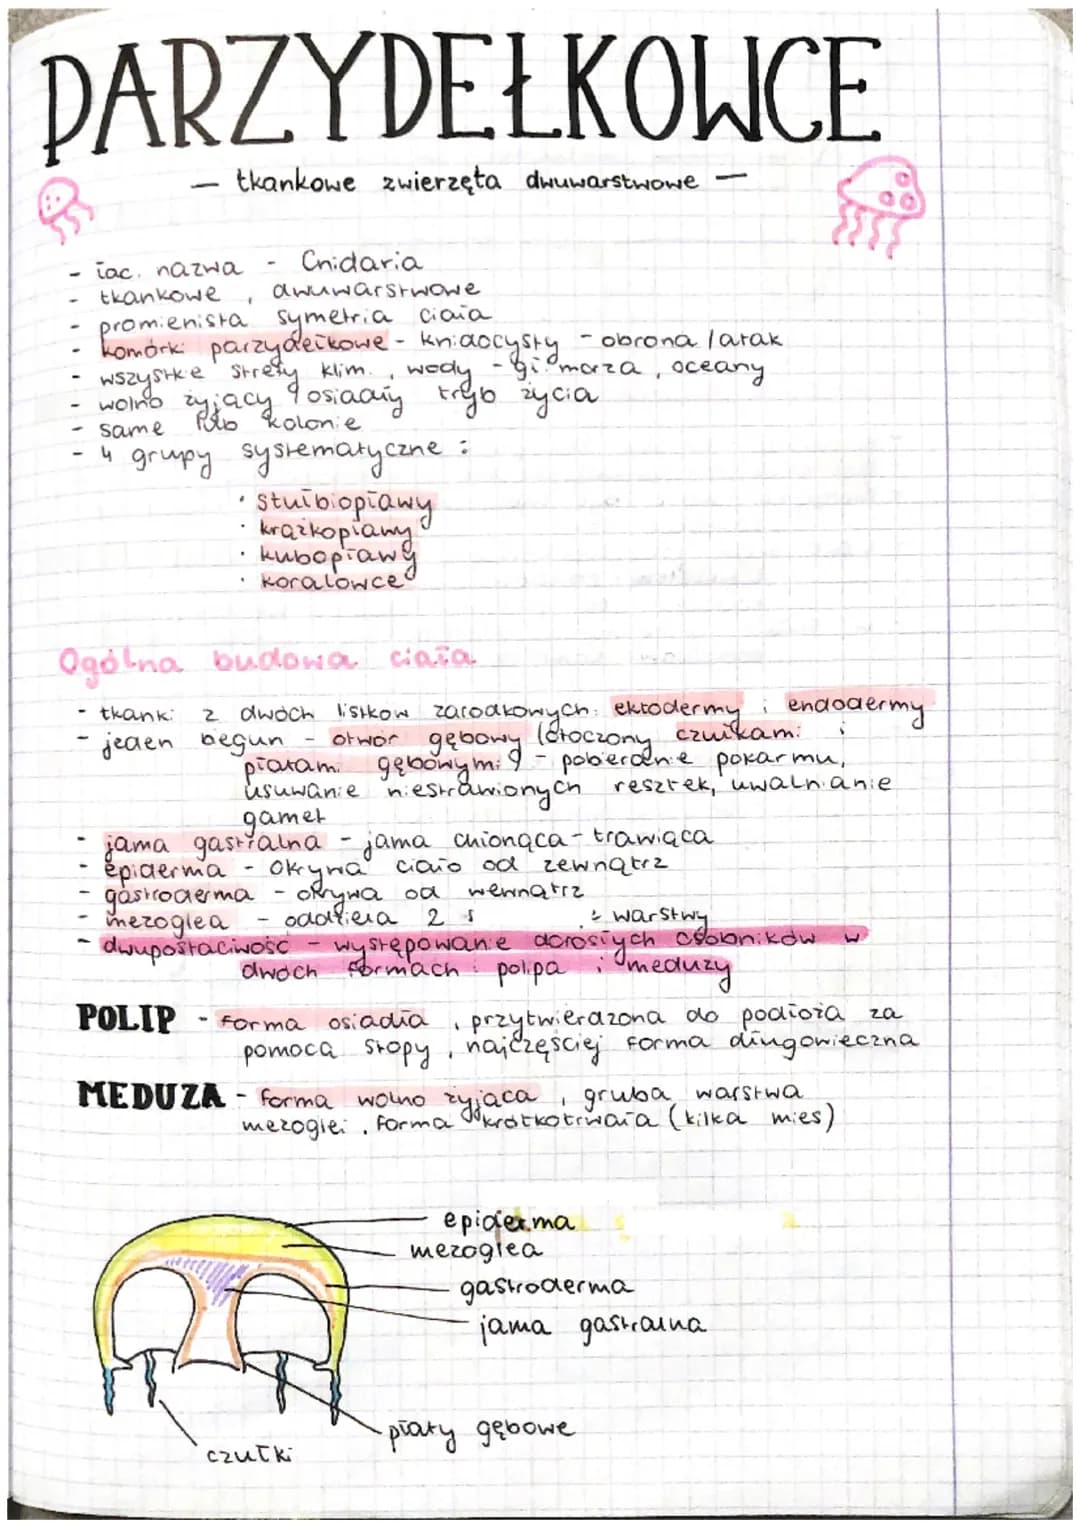 PARZYDEŁKOWCE
— tkankowe zwierzęta dwuwarstwowe —
- łac. nazwa - Cnidaria
- tkankowe, dwuwarstwowe
- promienista symetria ciała
- komórki parzydełkowe - knidocysty - obrona / atak
- wszystkie strefy klim., wody - gł. morza, oceany
- wolno żyjący / osiadły tryb życia
- same lub kolonie
- 4 grupy systematyczne :
· stułbiopławy
· krążkopławy
· kubopławy
· koralowce
Ogólna budowa ciała
- tkanki z dwóch listków zarodkowych: ektodermy i endodermy
- jeden biegun - otwór gębowy (otoczony czułkami i
płatami gębowymi) - pobieranie pokarmu,
usuwanie niestrawionych resztek, uwalnianie
gamet
- jama gastralna - jama chłonąca - trawiąca
- epiderma - okrywa ciało od zewnątrz
- gastroderma - okrywa od wewnątrz
- mezoglea - oddziela 2 warstwy
- dwupostaciwość - występowanie dorosłych osobników w
dwóch formach : polipa i meduzy
POLIP - forma osiadła, przytwierdzona do podłoża za
pomocą stopy, najczęściej forma długowieczna
MEDUZA - forma wolno żyjąca, gruba warstwa
mezoglei, forma krótkotrwała (kilka mies)
epiderma
mezoglea
gastroderma
jama gastralna
płaty gębowe
czułki